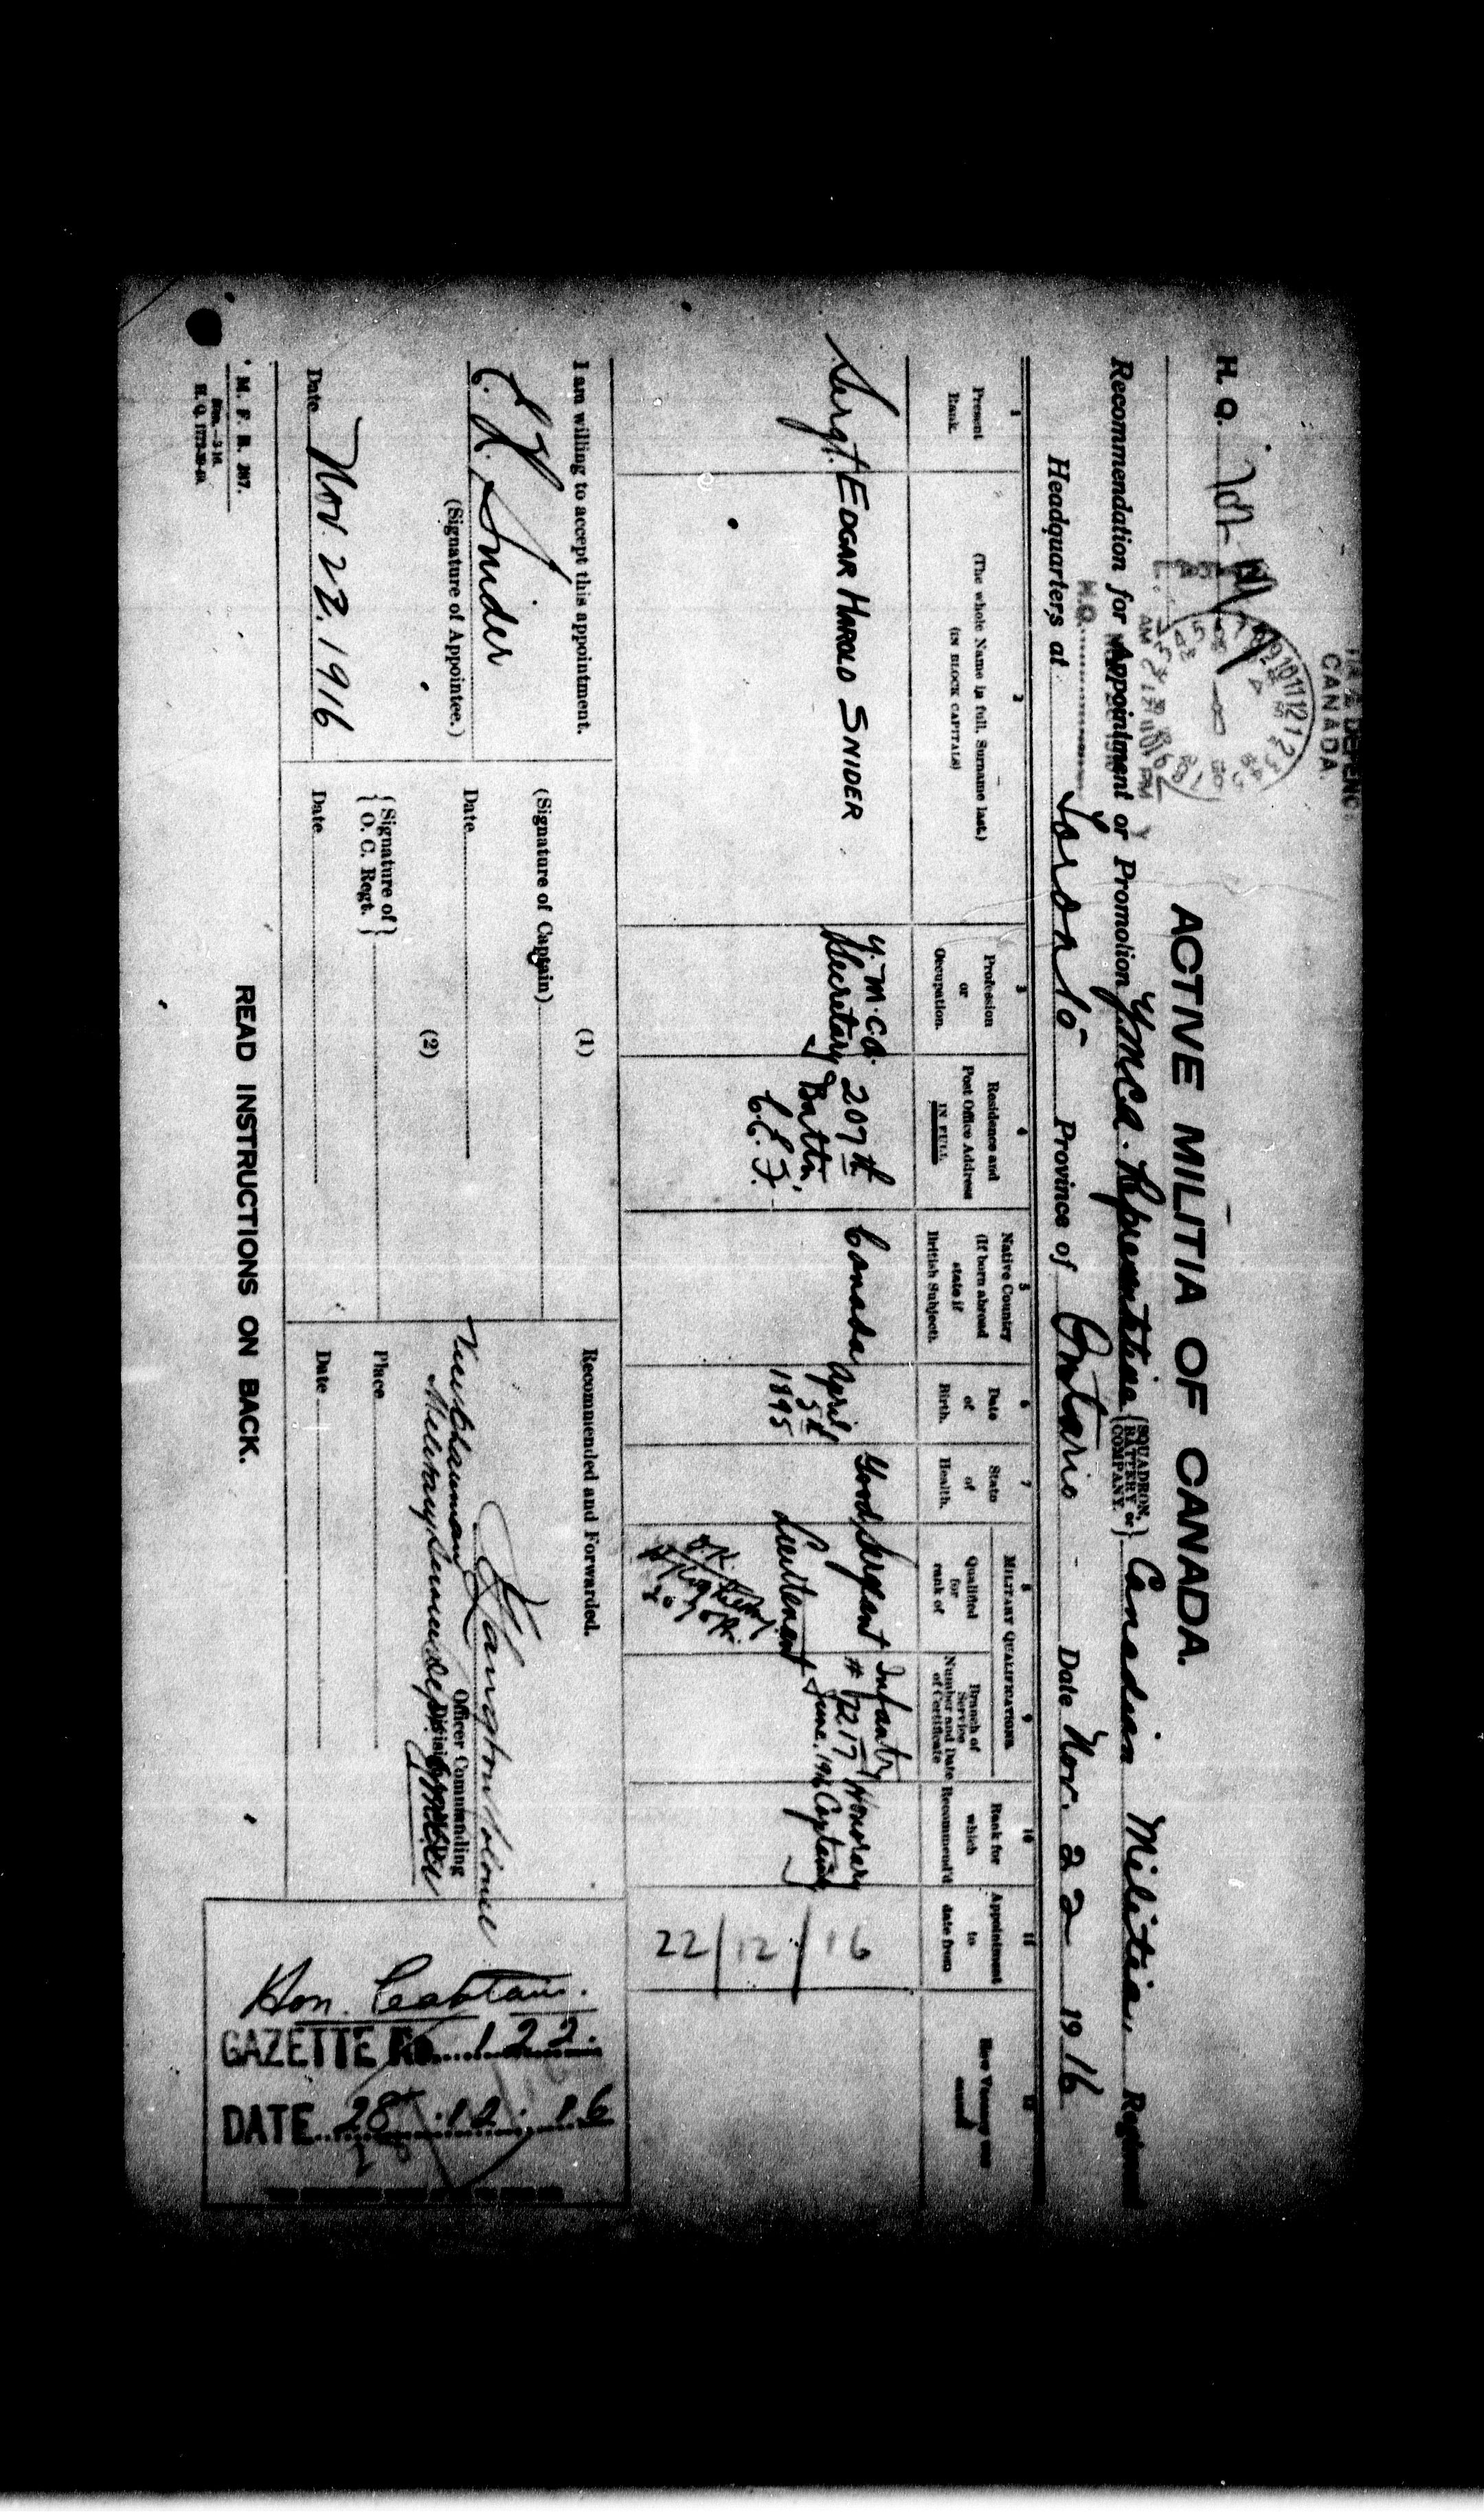 CANADA.
H. Q.
ACTIVE MILITIA OF CANADA.
Recommendation for Appointment or Promotion YMCA. Representative {SQUADRON, BATTERY or COMPANY.} Canadian Militia, Regiment
H.Q.
Headquarters at Toronto Province of Ontario Date Nov. 22 1916
1
Present Rank.
2
(The whole Name in full. Surname last.)
(IN BLOCK CAPITALS)
3
Profession or Occupation.
4
Residence and Post Office Address IN FULL
5
Native Country (If born abroad state if British Subject).
6
Date of Birth.
7
State of Health.
MILITARY QUALIFICATIONS.
8
Qualified for rank of
9
Branch of Service Number and Date of Certificate
10
Rank for which Recommend'd
11
Appointment to date from
12
How Vacancy was caused
Sergt.
EDGAR HAROLD SNIDER
Y.M.C.A. Secretary
207th Battn. C.E.F.
Canada
April 5th 1895
Good
Sergeant
Lieutenant
Infantry
# 17217
June, 1916
Honorary Captaincy
22/12/16
I am willing to accept this appointment.
E. H. Snider
(Signature of Appointee.)
Date Nov. 22. 1916
(1)
(Signature of Captain)
Date
(2)
{Signature of O. C. Regt.}
Date
Recommended and Forwarded.
Officer Commanding
Place
Date
Hon. Captain.
GAZETTE No. 122.
DATE 28.12.16
M. F. B. 287.
READ INSTRUCTIONS ON BACK.